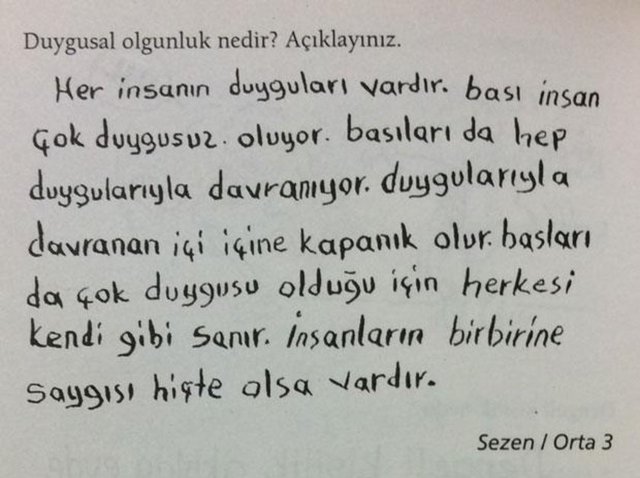 Duygusal olgunluk nedir? Açıklayınız.
Her insanın duyguları vardır. bası insan
çok duygusuz. oluyor. basıları da hep
duygularıyla davranıyor. duygularıyla
davranan içi içine kapanık olur. başları
da çok duygusu olduğu için herkesi
kendi gibi sanır. İnsanların birbirine
saygısı hiçte olsa vardır.
Sezen / Orta 3